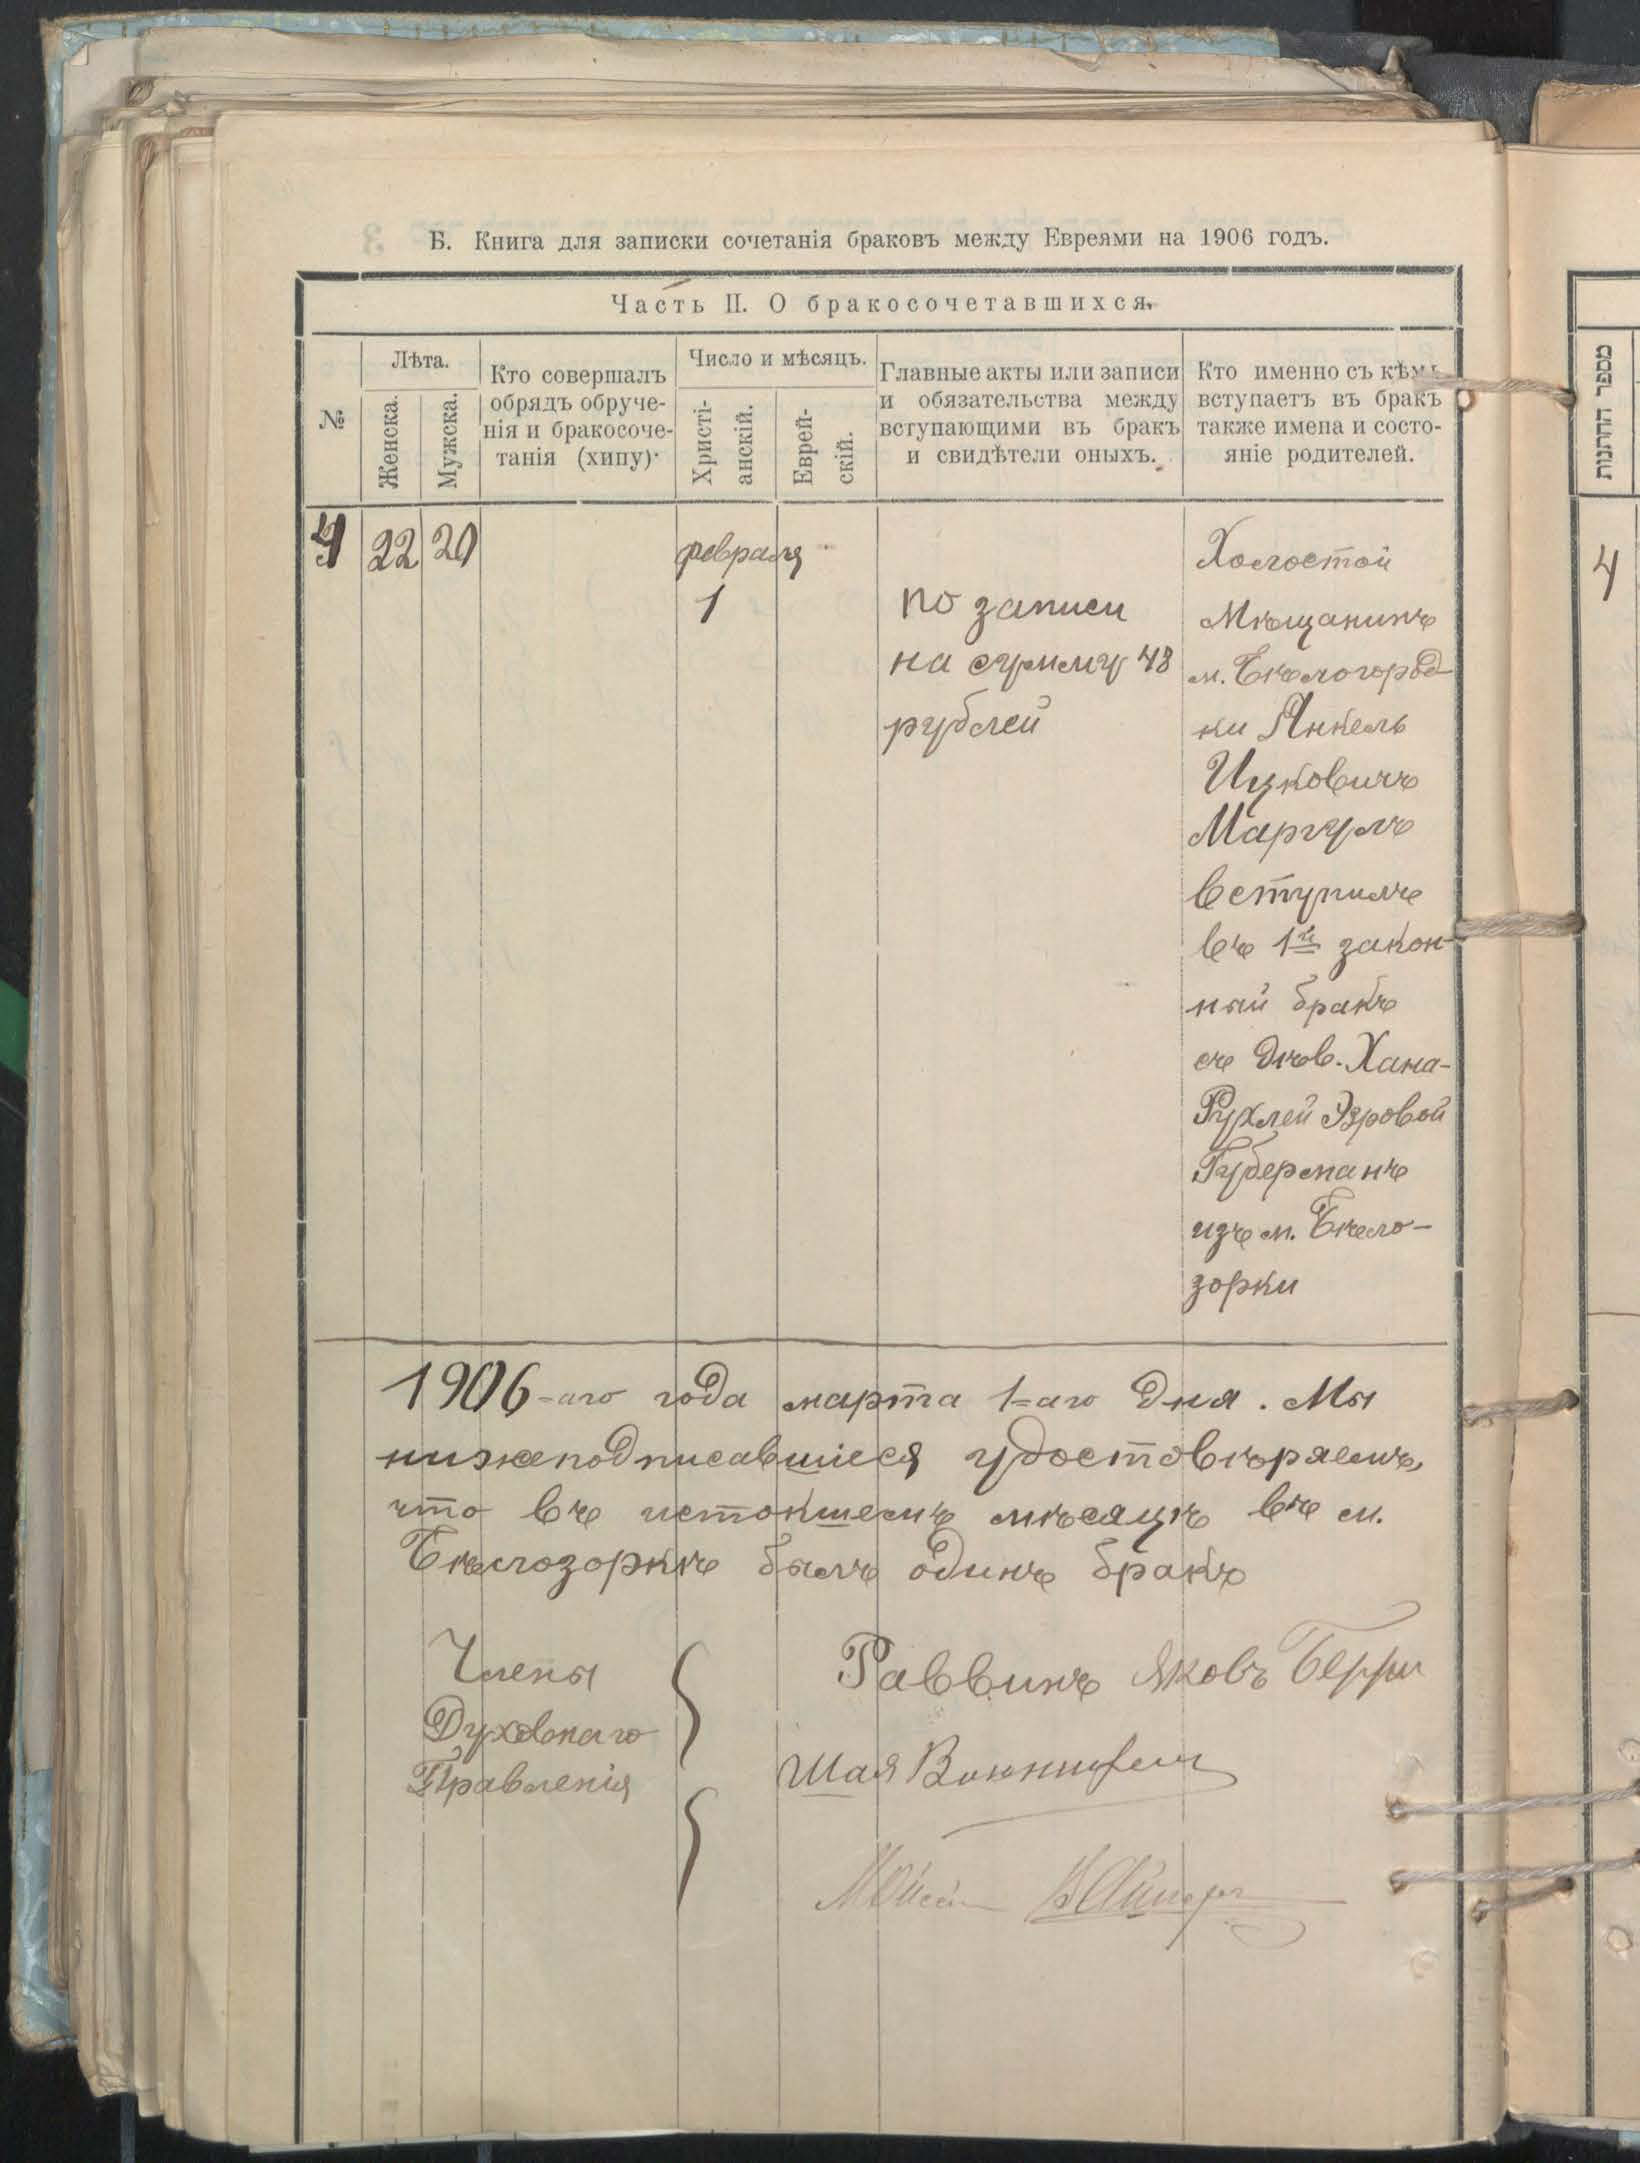 Б. Книга для записки сочетанія браковъ между Евреями на 1906 годъ.
Часть II. О бракосочетавшихся.
№
Лѣта.
Женска.
Мужска.
Кто совершалъ
обрядъ обруче-
нія и бракосоче-
танія (хипу).
Число и мѣсяцъ.
Христі-
анскій.
Еврей-
скій.
Главные акты или записи
и обязательства между
вступающими въ бракъ
и свидѣтели оныхъ.
Кто именно съ кѣмъ
вступаетъ въ бракъ
также имена и состо-
яніе родителей.
4
22
20
февраля
1
по записи
на сумму 48
рублей
Холостой
Мѣщанинъ
м. Бѣлогород-
ки Янкель
Ицковичъ
Маргулъ
вступилъ
въ 1й закон-
ный бракъ
съ дѣв. Хана-
Рухлей Эзровой
Губерманъ
изъ м. Бѣло-
зорки
1906-аго года марта 1-аго дня. Мы
нижеподписавшіеся удостовѣряемъ,
что въ истокшемъ мѣсяцѣ въ м.
Бѣлозоркѣ былъ одинъ бракъ
Члены
Духовнаго
Правленія
Раввинъ Яковъ
Шая
מספר החתונות
4